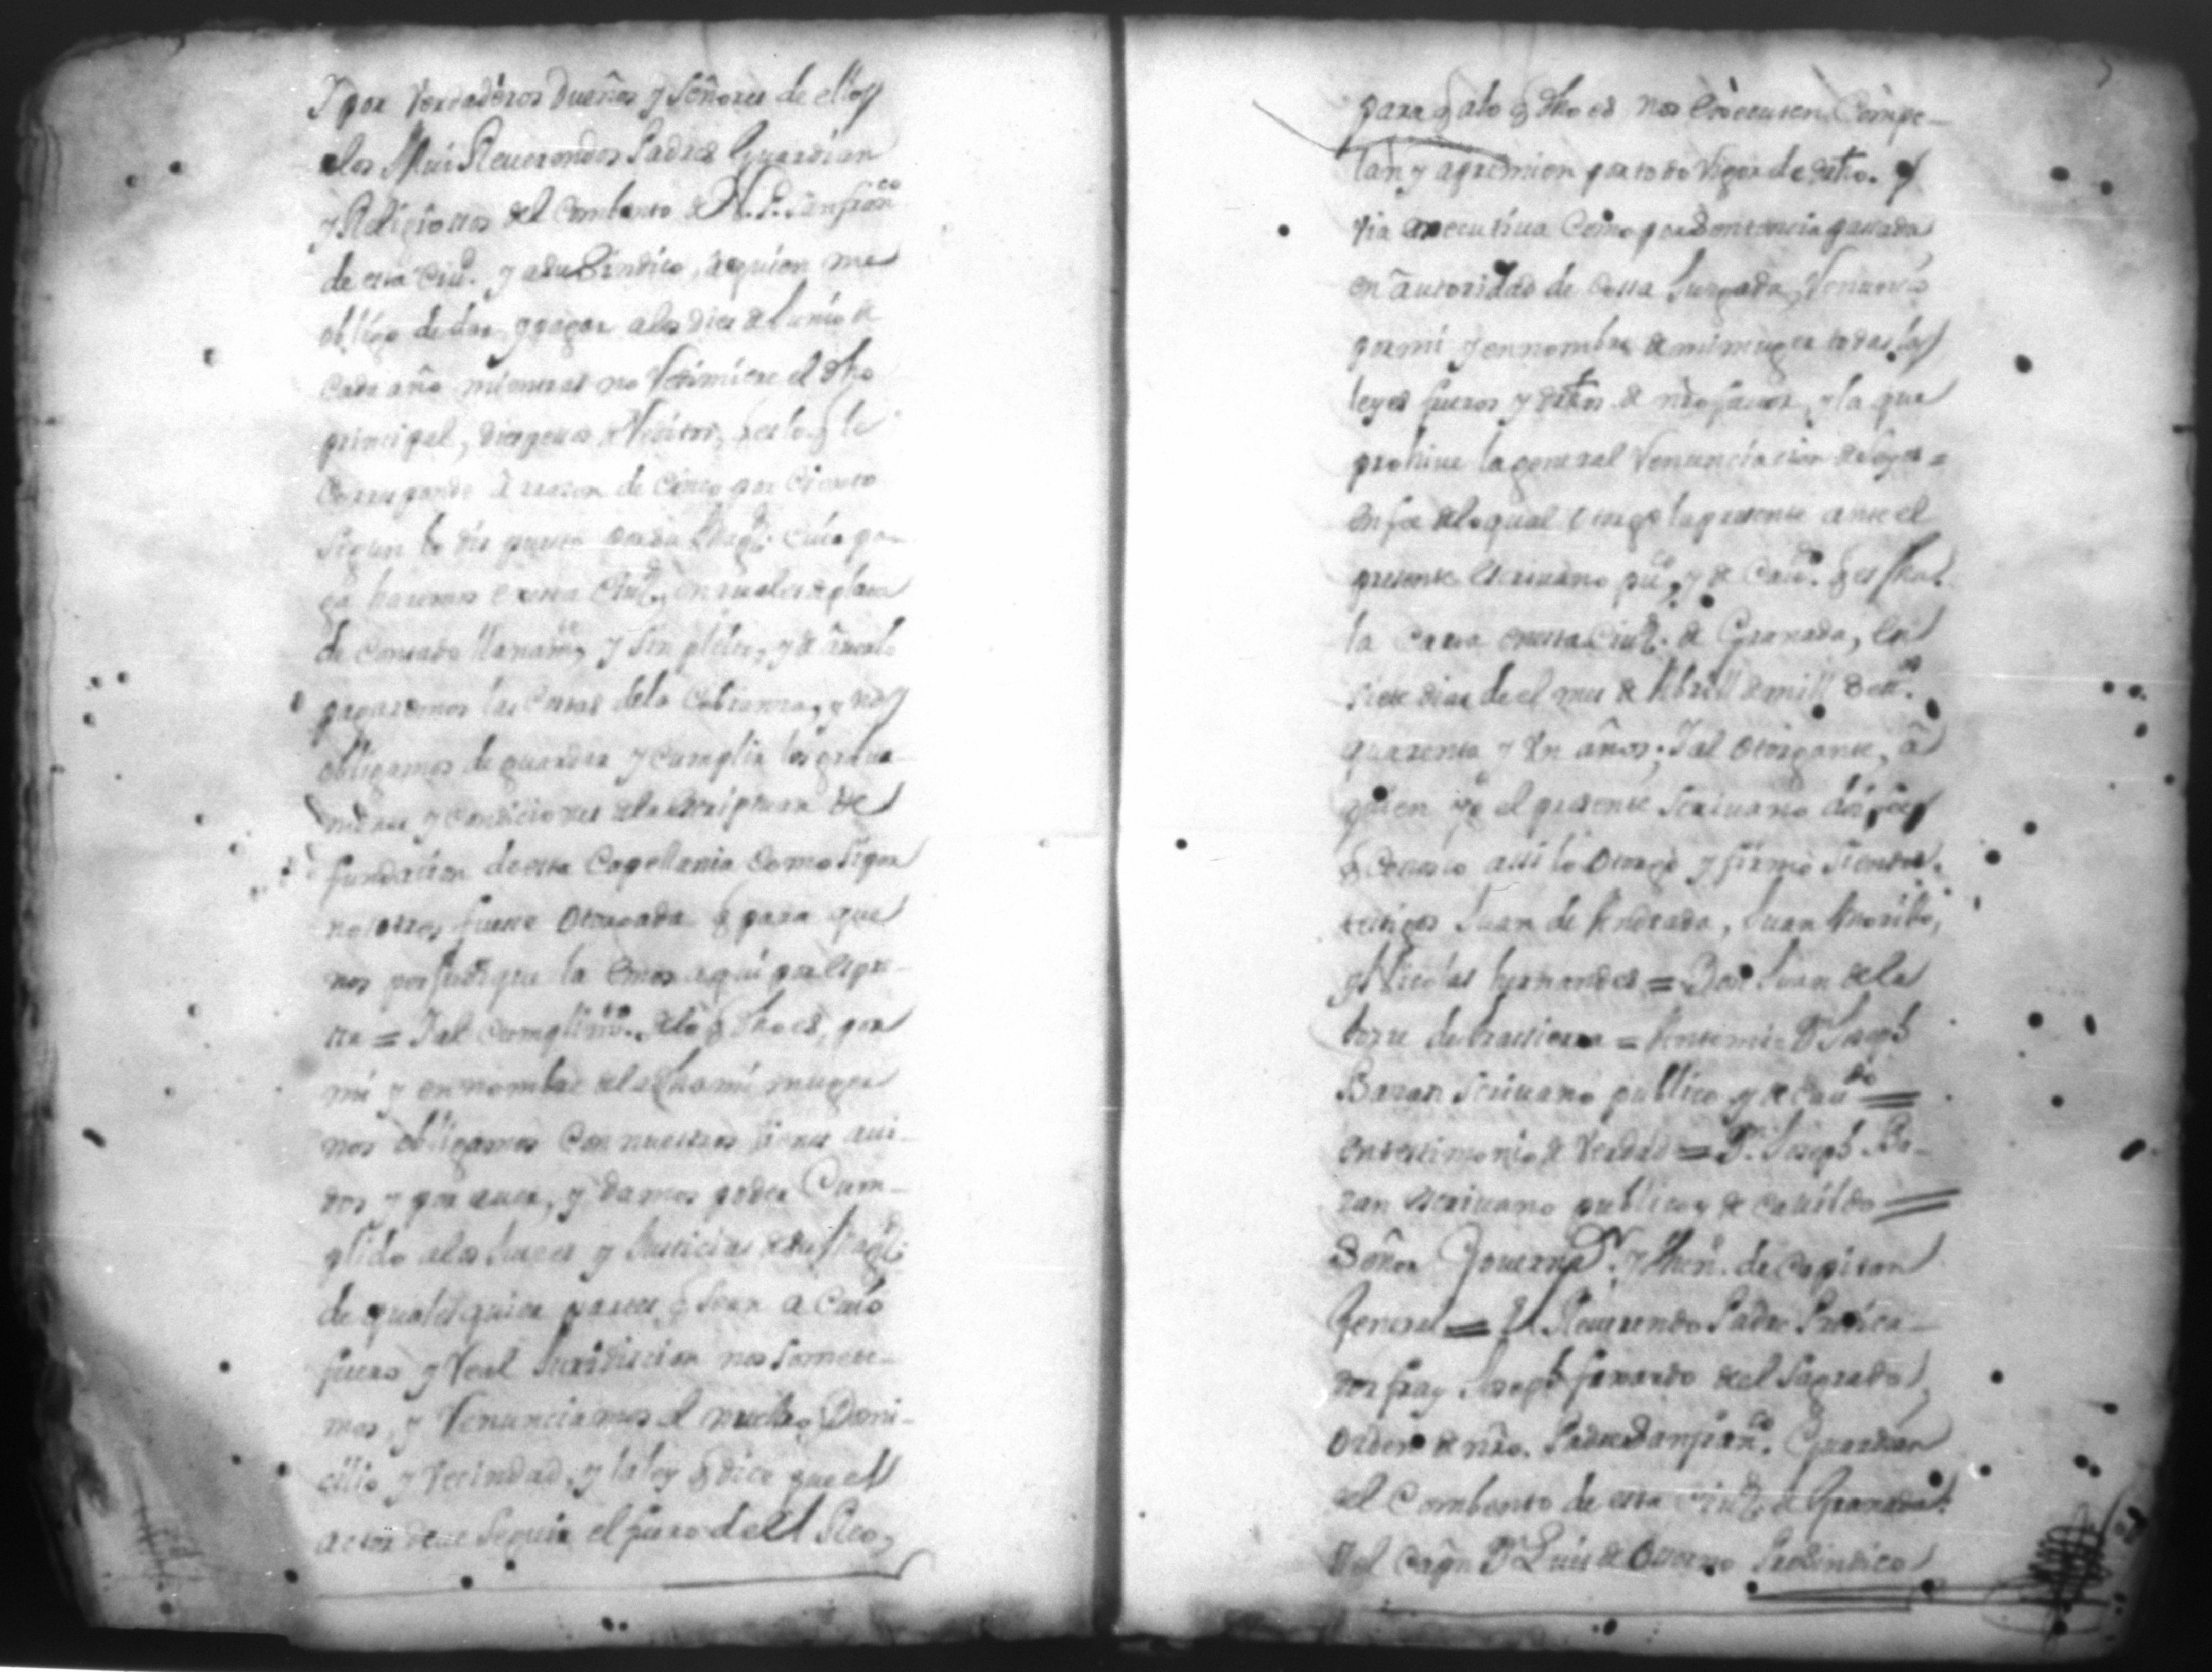 Y por Verdaderos Dueños y Señores de ellos
a los Mui Reuerendos Padres Guardian
y Religiosos del Combento de N. P. San fran.co
de esta Ciu.d y a su Sindico, a quien me
obligo de dar y pagar a los dies de Junio de
Cada año mientras no Redimiere el dho
principal, dies pessos de Reditos, q es lo q le
Corresponde a rason de Cinco por Ciento
Segun lo dis puesto por su Mag.d Cuia pa-
ga haremos en esta Ciud. en reales de plata
de Contado llanam.te y sin pleito, y de
pagaremos las Costas de la Cobranza, y nos
obligamos de guardar y cumplir los graua-
menes y condiciones de la Escriptura de
fundacion de esta Capellania Como si por
nosotros fuese Otorgada q para que
nos perjudique la emos aqui por expre-
sa = Y al Cumplim.to de lo q dho es, por
mi y en nombre de la dha mi muger
nos obligamos Con nuestros vienes aui-
dos y por auer, y damos poder Cum-
plido a los Jueces y Justicias de su Mag.d
de quales quier partes q Sean a Cuio
fuero y Real Jurisdiccion nos Somete-
mos, y Renunciamos el nuestro Domi-
cilio y Vecindad, y la ley q dice que el
actor deue Seguir el fuero del Reo,
para q a lo q dho es nos executen Compe-
lan y apremien por todo Vigor de dro. y
via executiua Como por Sentencia passada
en autoridad de Cossa Jusgada, Renuncio
por mi y en nombre de mi muger todas las
leyes fueros y dros. de nro fauor, y la que
prohiue la general Renunciacion de leyes =
en fee de lo qual Otorgo la presente ante el
presente Escriuano pu.co y de Cau.do q es fha.
la Carta en esta Ciud. de Granada, en
Siete dias de el mes de Abrill de mill Set.os
quarenta y Un años; Y al Otorgante, a
quien yo el presente Scriuano doi fee
q Conosco assi lo Otorgo y firmo Siendo
testigos Juan de Andrada, Juan Morillo,
y Nicolas hernandes = Don Juan de la
torre = Ante mi = D.n Joseph
Bazan Scriuano publico y de Cau.do =
en testimonio de Verdad = D.n Joseph Ba-
zan Scriuano publico y de Cauildo =
Señor Gouernad.or y then.te de Capitan
General = El Reuerendo Padre Predica-
dor fray Joseph faxardo del Sagrado
Orden de nro. Padre San fran.co Guardian
del Combento de esta Ciud. de Granada
y el Capn D.n Luis de Sindico